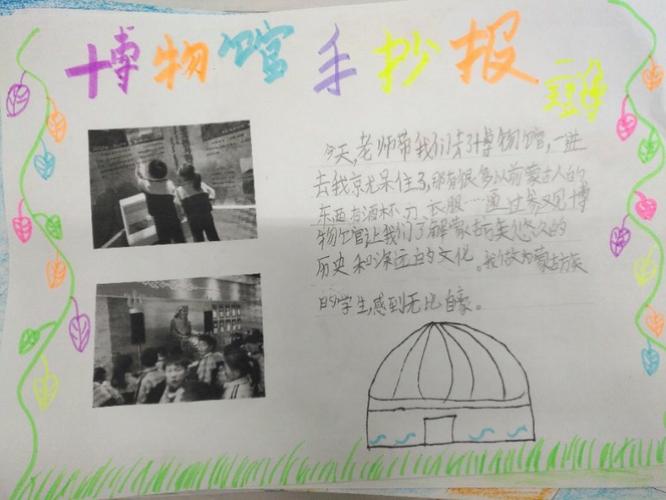 博物馆手抄报
今天,老师带我们去了博物馆,一进
去我就惊呆住了,那有很多以前蒙古人的
东西有酒杯、刀、衣服……通过参观博
物馆让我们了解蒙古族悠久的
历史和深远的文化。我做为蒙古族
的学生,感到无比自豪。